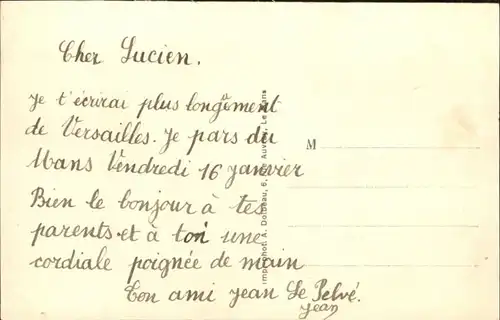 Cher Lucien.
Je t'écrirai plus longuement
de Versailles. Je pars du
Mans Vendredi 16 janvier
Bien le bonjour à tes
parents et à toi une
cordiale poignée de main
Ton ami Jean Le Pelvé.
Jean
M
Imp. phot. A. Dolbeau, 6, Auvray, Le Mans